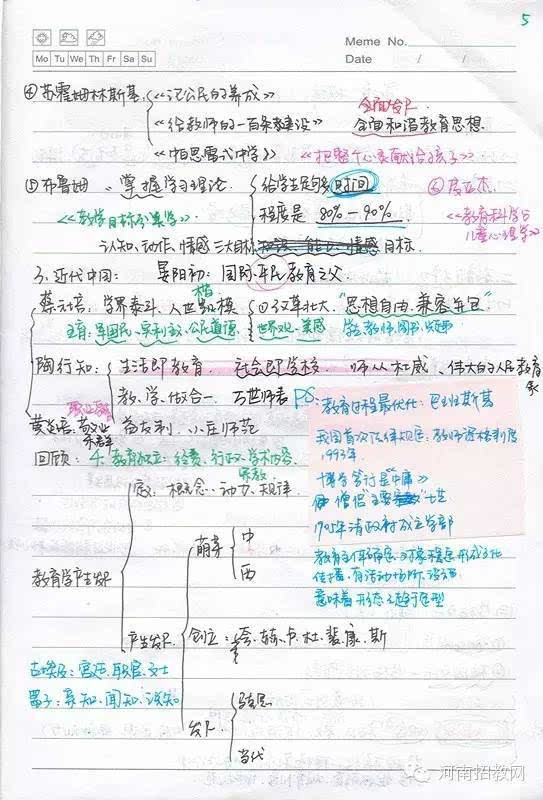 5
Meme No.
Mo Tu We Th Fr Sa Su
Date / /
④苏霍姆林斯基:《论公民的养成》
全面发展
《给教师的一百条建议》 全面和谐教育思想
《帕思雷式中学》 《把整个心灵献给孩子》
⑤布鲁姆、掌握学习理论. 给学生足够多时间
⑥皮亚杰
《教学目标分类学》 程度是 80%-90%.
《教育科学与儿童心理学》
认知、动作、情感三大目标 目标.
3、近代中国: 晏阳初: 国际平民教育之父
蔡元培, 学界泰斗、人世楷模 "思想自由,兼容并包"
主育:军国民、实利主义、公民道德 世界观、美感
陶行知: 生活即教育. 社会即学校. 伟大的人民教育家
教、学、做合一. 万世师表
PS:教育过程最优化:巴班斯基
我国首次法律规定:教师资格制度
1993年.
黄炎培:
回顾: 4. 教育独立:经费、行政、学术内容、宗教
广: 概念、动力、规律
1905年清政府成立学部
萌芽 中
西
教育学产生发展
意味着形态已趋于定型
产生发展 创立:夸、赫、卡、杜、裴、康、斯
古埃及:宫廷、职官、文士
墨子:亲知、闻知、说知
发展
当代
河南招教网